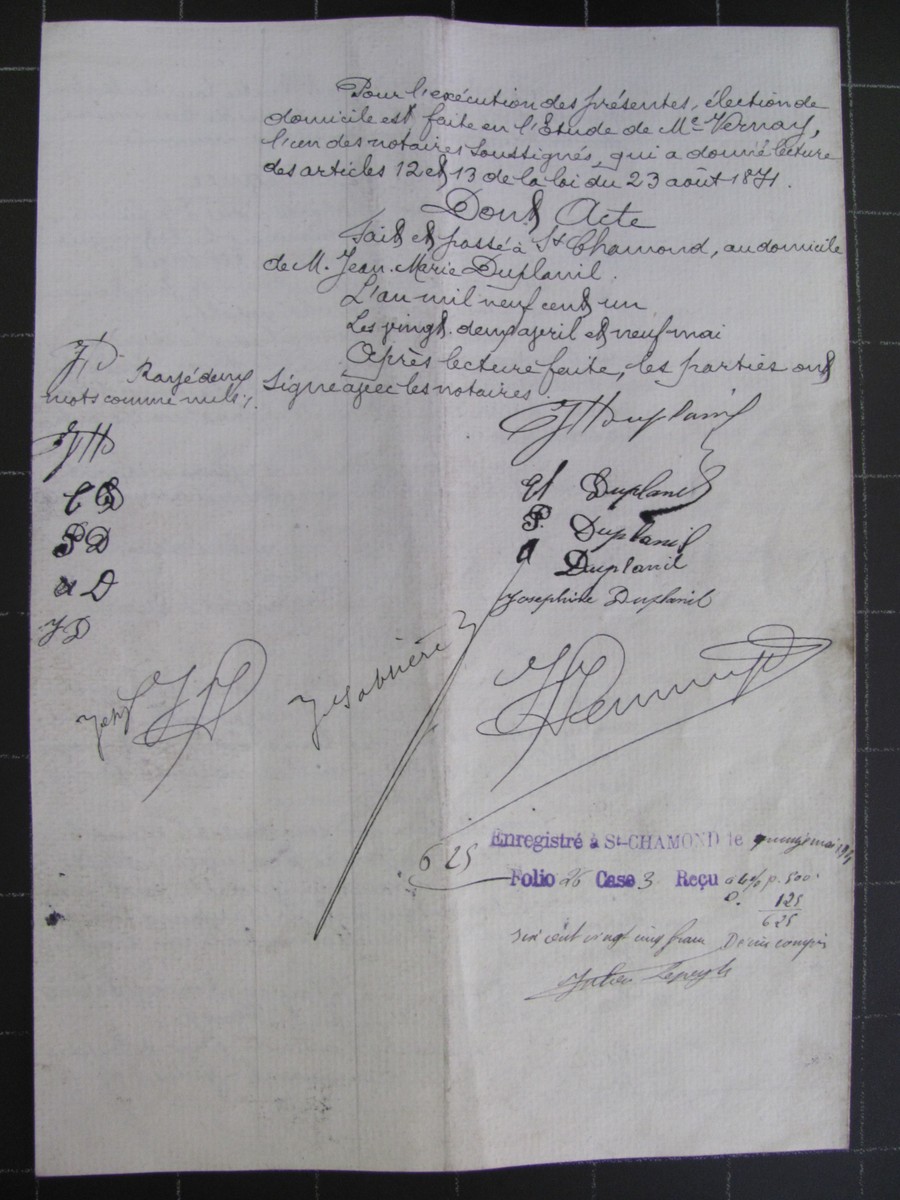 Pour l'exécution des présentes, élection de
domicile est faite en l'Etude de Me Vernay,
l'un des notaires soussignés, qui a donné lecture
des articles 12 et 13 de la loi du 23 août 1871.
Dont Acte
Fait et passé à St Chamond, au domicile
de M. Jean-Marie Duplanil.
L'an mil neuf cent un
Les vingt-deux avril et neuf mai
Après lecture faite, les parties ont
signé avec les notaires.
JD
Rayé deux
mots comme nuls
JMD
JM Duplanil
CD
Duplanil
PD
P. Duplanil
a D
a Duplanil
JD
Josephine Duplanil
Enregistré à St-CHAMOND le quinze mai 1901
6 25
Folio 26 Case 3 Reçu
p. 500
D. 125
625
six cent vingt cinq francs Décimes compris